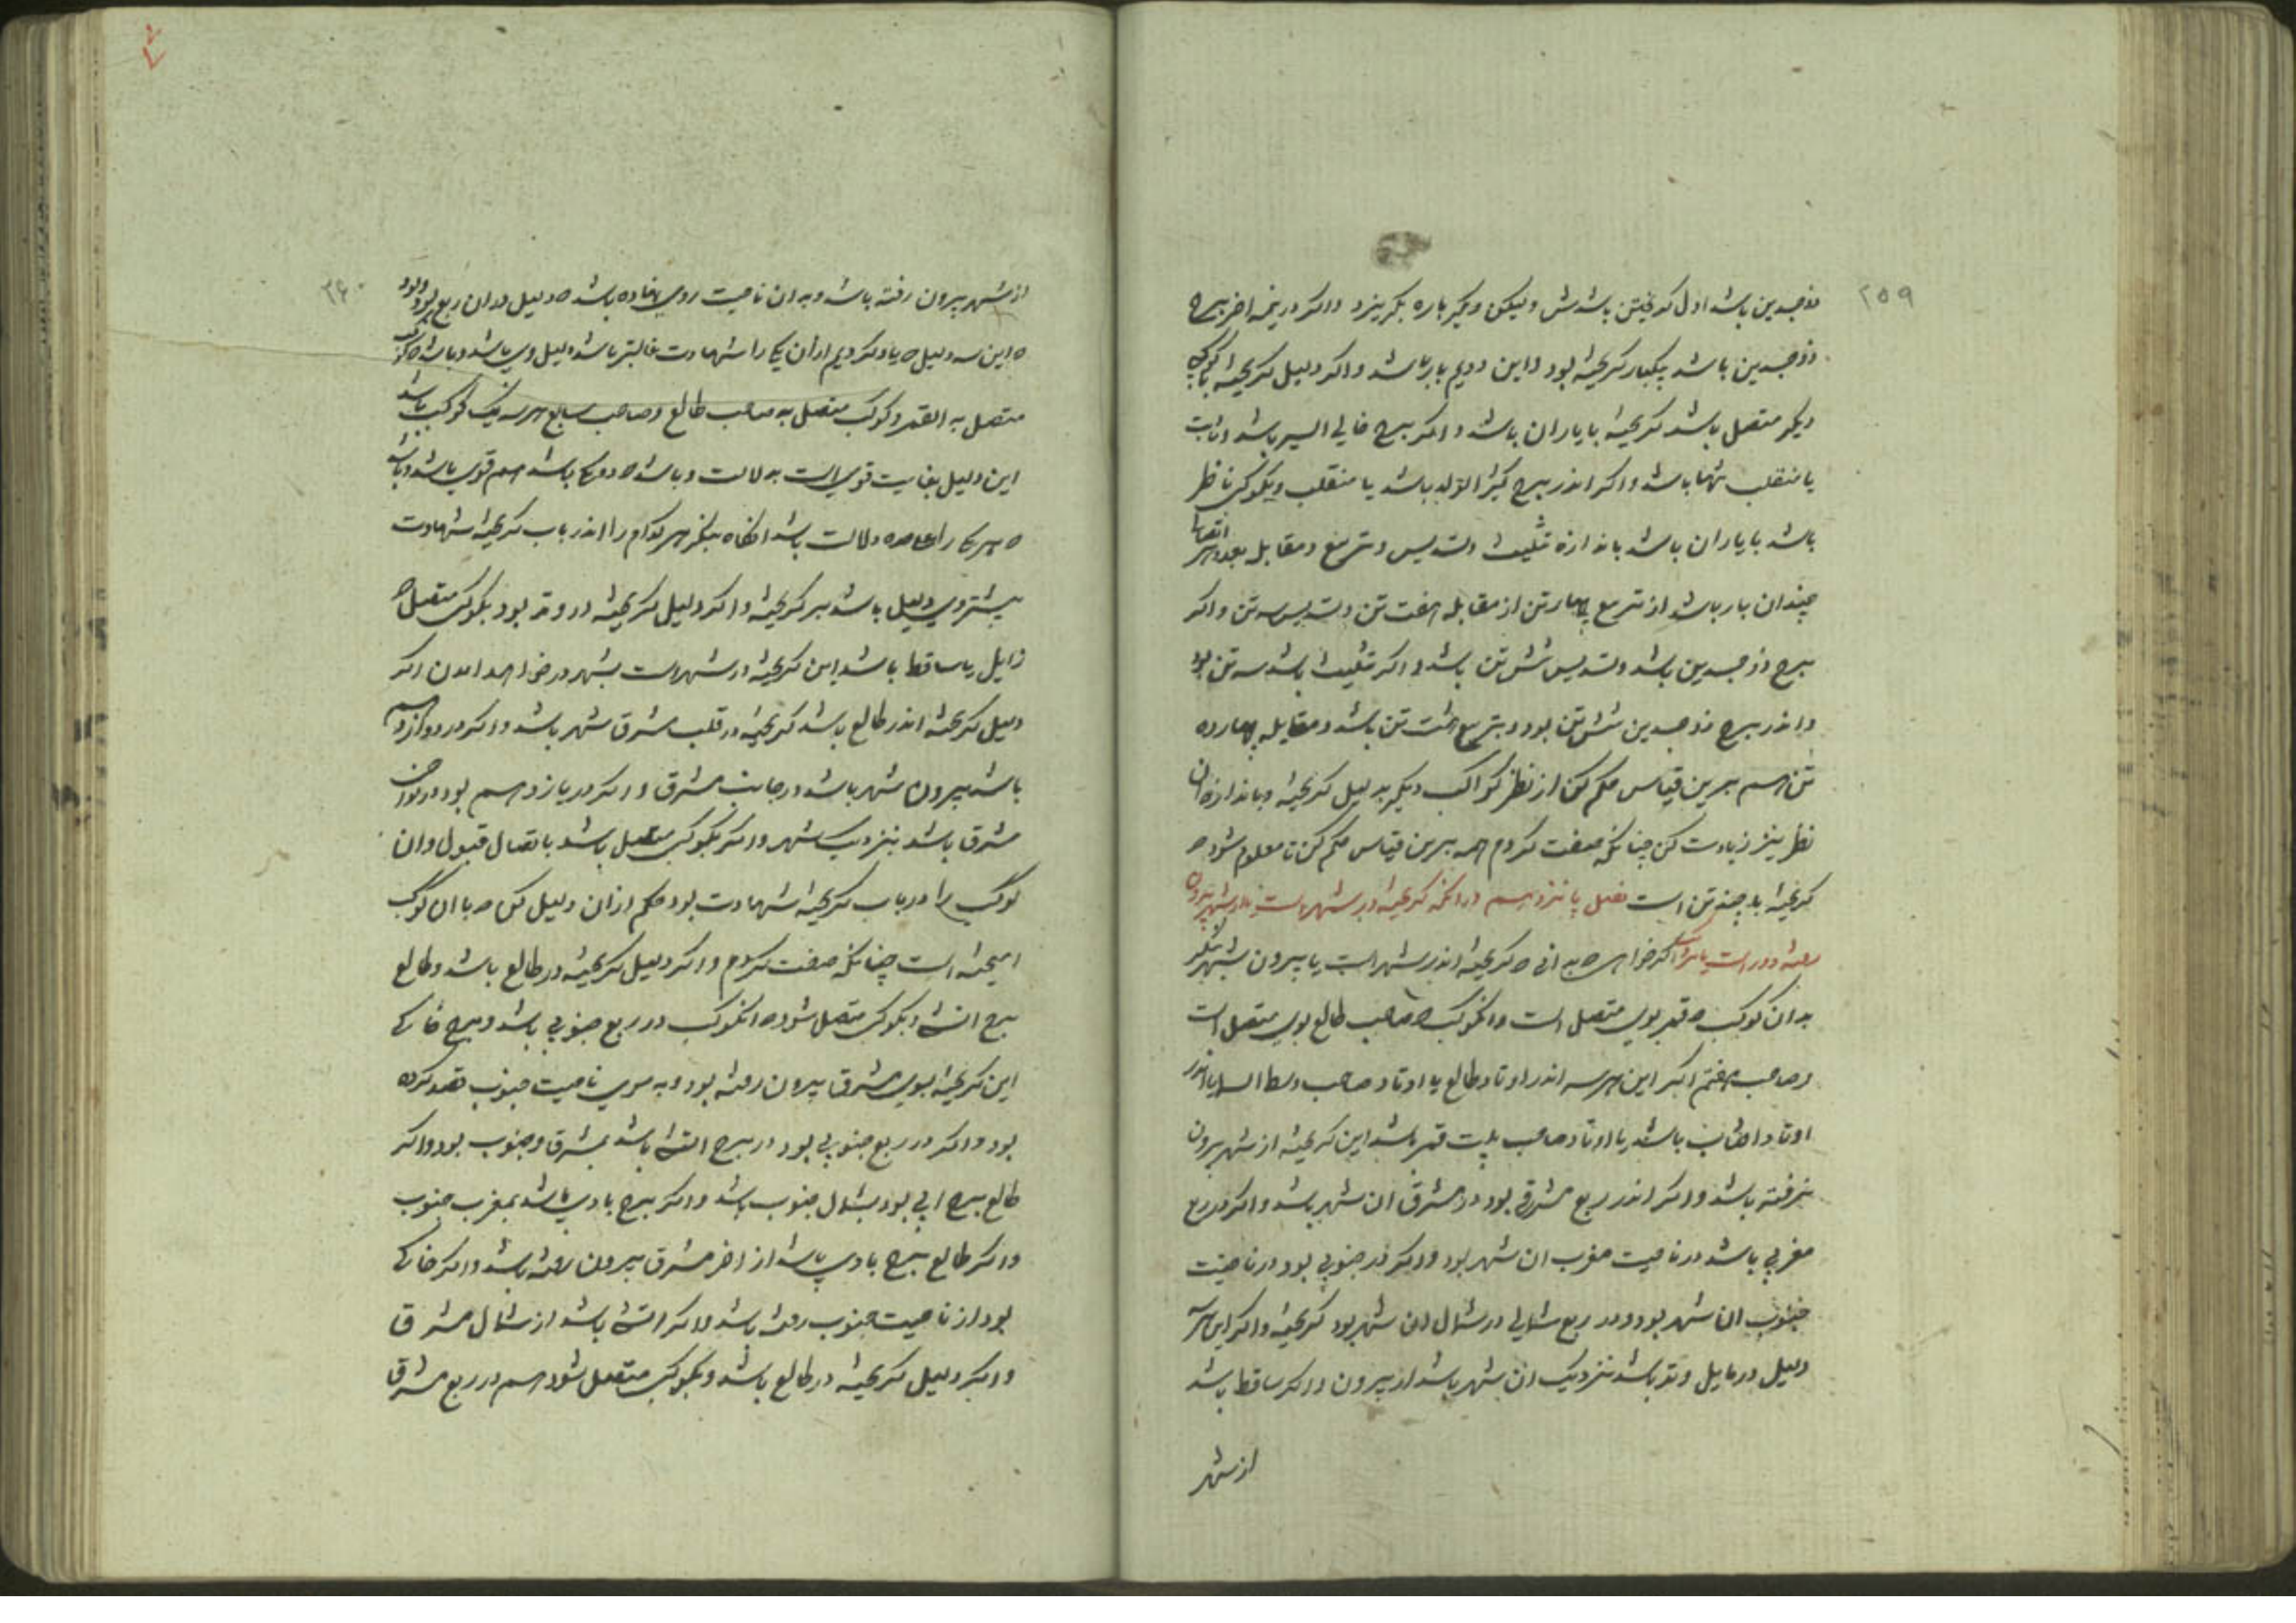 ۲۵۹
ذوجسدین باشد اول گریختن باشدش ولیکن دیگر باره بگریزد واگر در نیمه اخر برج
ذوجسدین باشد یکبار گریخته بود واین دویم بار باشد واگر دلیل گریخته با کوکب
دیگر متصل باشد گریخته با یاران باشد واگر برج خالی السیر باشد وثابت
یا منقلب تنها باشد واگر اندر برج کثیر الولد باشد یا منقلب وبکوکبی ناظر
باشد با یاران باشد باندازه تثلیث وتسدیس وتربیع ومقابل بعدد هر اتصالها
چندان یار باشد از تربیع چهار تن از مقابله هفت تن وتسدیس سه تن واگر
برج ذوجسدین باشد وتسدیس شش تن باشد واگر تثلیث باشد سه تن بود
واندر برج ذوجسدین شش تن بود وبتربیع هشت تن باشد ومقابله چهارده
تن هم برین قیاس حکم کن از نظر کواکب دیگر بدلیل گریخته وباندازه ان
نظر نیز زیادت کن چنانکه صفت کردم همه برین قیاس حکم کن تا معلوم شود که
گریخته با چند تن است فصل پانزدهم در انکه گریخته در شهر است یا از شهر بیرون
رفته دور است یا نزدیک اگر خواهی که بدانی که گریخته اندر شهر است یا بیرون شهر بنگر
بدان کوکب که قمر بوی متصل است وانکوکب که صاحب طالع بوی متصل است
وصاحب هفتم اگر این هر سه اندر اوتاد طالع یا اوتاد صاحب وسط السما یا اندر
اوتاد افتاب باشد یا اوتاد صاحب بیت قمر باشد این گریخته از شهر بیرون
نرفته باشد واگر اندر ربع مشرقی بود در مشرق ان شهر باشد واگر در ربع
مغربی باشد در ناحیت مغرب ان شهر بود واگر در جنوبی بود در ناحیت
جنوب ان شهر بود ودر ربع شمالی در شمال ان شهر بود گریخته واگر این هر سه
دلیل در مایل وتد باشد نزدیک ان شهر باشد از بیرون واگر ساقط باشد
از شهر
۲۶۰
از شهر بیرون رفته باشد وبدان ناحیت روی نهاده باشد که دلیل در ان ربع بود
که این سه دلیل که یاد کردیم از ان یکی را شهادت غالبتر باشد دلیل وی باشد وباشد که کوکب
متصل به القمر وکوکب متصل به صاحب طالع وصاحب سابع هر سه یک کوکب باشد
این دلیل بغایت قوی است بدلالت وباشد که دو یکی باشد هم قوی باشد وباشد
که هر یکی را علاحده دلالت باشد انگاه بنگر هر کدام را اندر باب گریخته شهادت
بیشتر وی دلیل باشد بر گریخته واگر دلیل گریخته در وتد بود بکوکبی متصل که
زایل یا ساقط باشد این گریخته در شهر است بشهر در خواهد امدن اگر
دلیل گریخته اندر طالع باشد گریخته در قلب مشرق شهر باشد واگر در دوازدهم
باشد بیرون شهر باشد در جانب مشرق واگر در یازدهم بود در نواحی
مشرق باشد بنزدیک شهر واگر بکوکبی متصل باشد باتصال قبول وان
کوکب را در باب گریخته شهادت بود حکم از ان دلیل کن که با ان کوکب
امیخته است چنانکه صفت کردم واگر دلیل گریخته در طالع باشد وطالع
برج اتشی وبکوکبی متصل شود که انکوکب در ربع جنوبی باشد وبرج خاکی
این گریخته بسوی مشرق بیرون رفته بود وبه سوی ناحیت جنوب قصد کرده
بود واگر در ربع جنوبی بود در برج اتشی باشد بمشرق وجنوب بود واگر
طالع برج ابی بود بشمال جنوب باشد واگر برج بادی باشد بمغرب جنوب
واگر طالع برج بادی باشد از اخر مشرق بیرون رفته باشد واگر خاکی
بود از ناحیت جنوب رفته باشد واگر اتشی باشد از شمال مشرق
واگر دلیل گریخته در طالع باشد وبکوکبی متصل شود هم در ربع مشرق